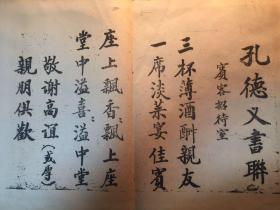 孔德义書聯
賓客招待室
三杯薄酒酬親友
一席淡菜宴佳賓
座上飄香飄上座
堂中溢喜溢中堂
敬謝高誼(或厚)
親朋俱歡